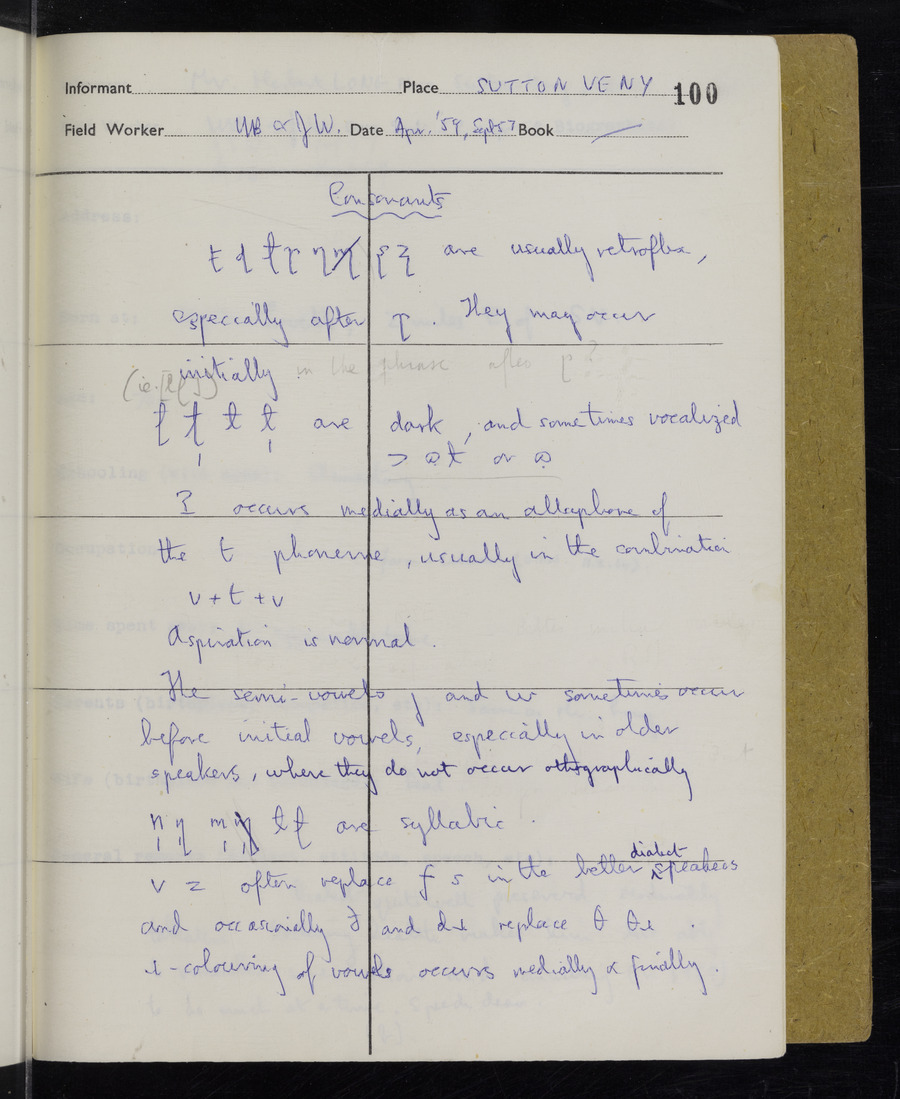 Informant Place SUTTON VENY 100
Field Worker & JW. Date Apr. '59, Sept 57 Book
Consonants
ʈ ɖ ɳ ʂ ʐ are usually retroflex,
especially after ɽ. They may occur
initially. in the phrase after ɽ?
(ie.
are dark, and sometimes vocalized
> or
ʔ occurs medially as an allophone of
the t phoneme, usually in the combination
v + t + v
Aspiration is normal.
The semi-vowels j and w sometimes occur
before initial vowels, especially in older
speakers, where they do not occur orthographically
n̩ ɳ̩ m̩ are syllabic.
v z often replace f s in the better dialect speakers
and occasionally ð and dɹ replace θ θɹ.
ɹ-colouring of vowels occurs medially & finally.